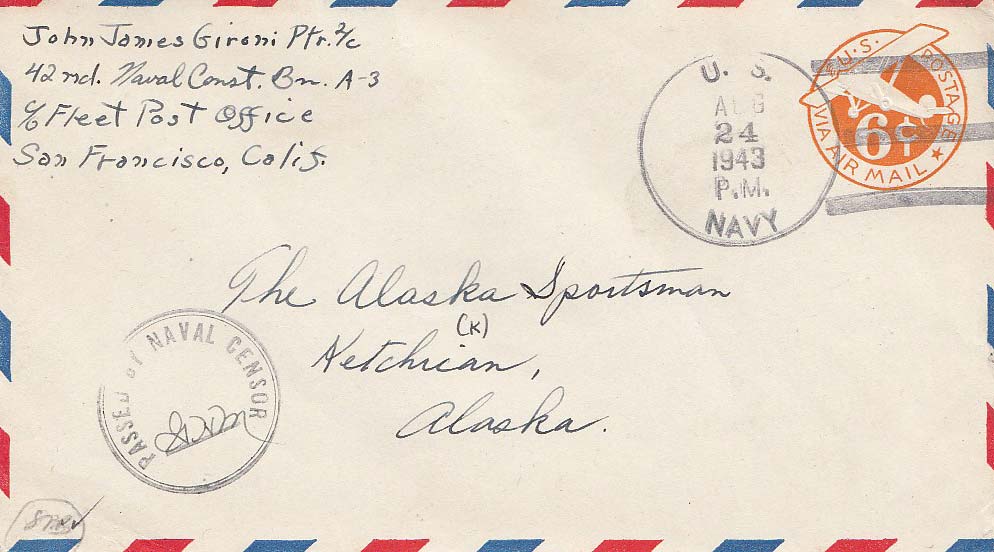 John James Gironi Ptr. 2/c
42nd. Naval Const. Bn. A-3
c/o Fleet Post Office
San Francisco, Calif.
U. S.
AUG
24
1943
P.M.
NAVY
U.S. POSTAGE
6¢
VIA AIR MAIL
The Alaska Sportsman
(K)
Ketchican,
Alaska.
PASSED BY NAVAL CENSOR